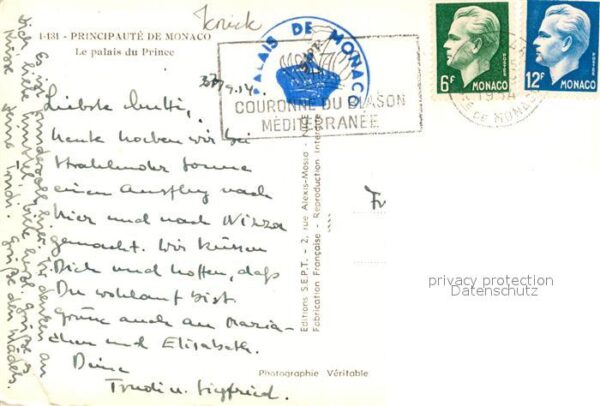 Jenick
1-131 - PRINCIPAUTÉ DE MONACO
Le palais du Prince
PALAIS DE MONACO
COURONNE DU BLASON
MÉDITERRANÉE
6F
MONACO
12F
MONACO
Liebste Mutti,
heute haben wir bei
strahlender Sonne
einen Ausflug nach
hier und nach Nizza
gemacht. Wir küssen
Dich und hoffen, daß
Du wohlauf bist.
Grüße auch an Maria-
chen und Elisabeth.
Deine
Trudi u. Siegfried.
Es ist wunderbar hier. Wir denken an
Dich
Grüße den Mädels.
Editions S.E.P.T. - 2, rue Alexis-Mossa - Nice
Fabrication Française - Reproduction interdite
Photographie Véritable
Fr
privacy protection
Datenschutz